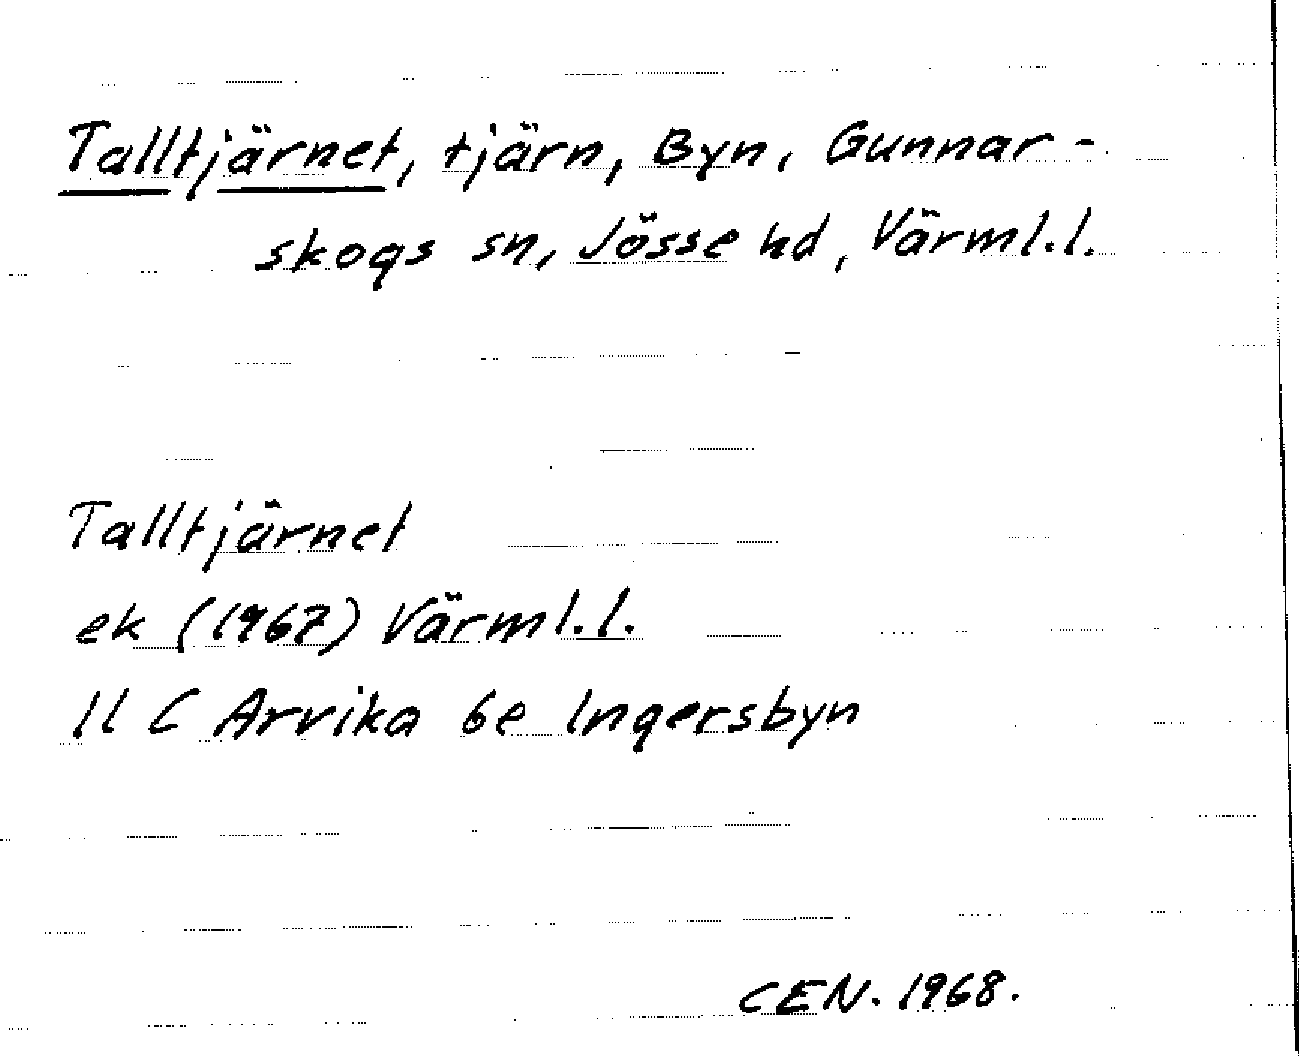 Talltjärnet, tjärn, Byn, Gunnar-
skogs sn, Jösse hd, Värml.l.
Talltjärnet
ek (1967) Värml.l.
11 C Arvika 6e Ingersbyn
CEN. 1968.